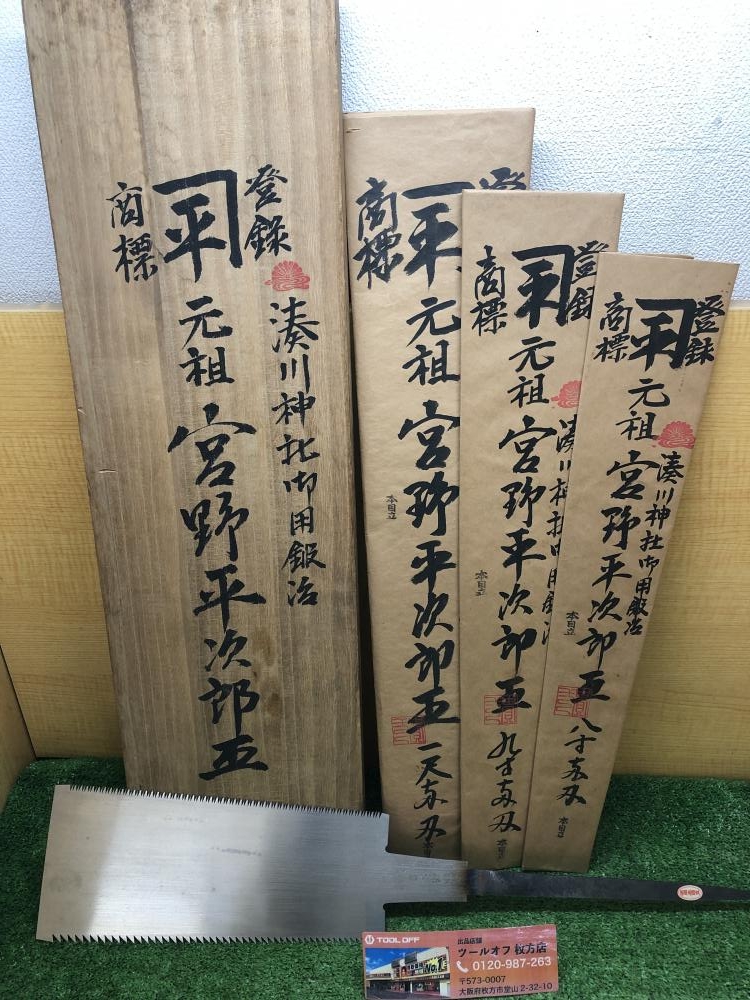 登録
商標
元祖
湊川神社御用鍛冶
宮野平次郎正
登録
商標
元祖
宮野平次郎正
一尺両刃
本目立
登録
商標
元祖
宮野平次郎正
九寸両刃
本目立
登録
商標
元祖
湊川神社御用鍛冶
宮野平次郎正
八寸両刃
本目立
TOOL OFF
出品店舗
ツールオフ 枚方店
0120-987-263
〒573-0007
大阪府枚方市堂山2-32-10